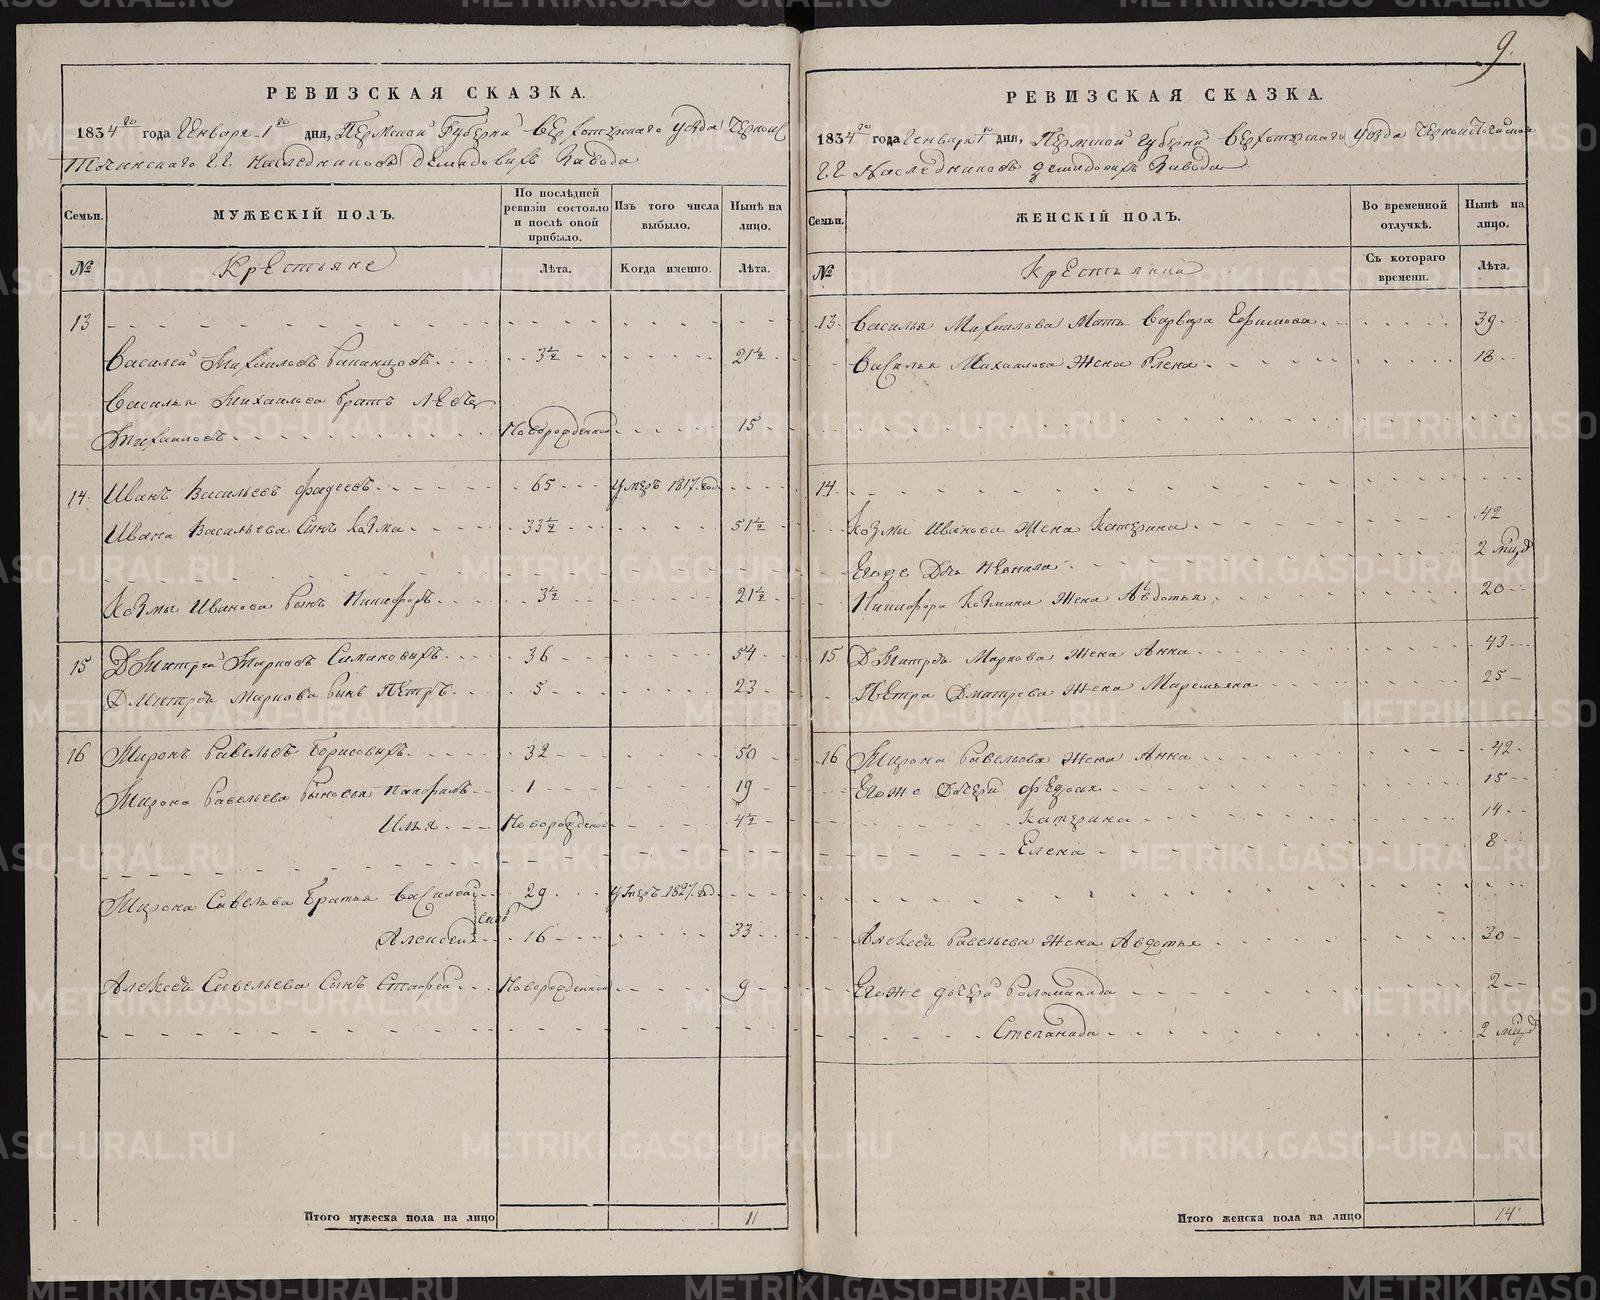 9.
РЕВИЗСКАЯ СКАЗКА.
1834 го года Генваря 1 го дня, Пермской Губернии Верхотурского уезда Черноис
точинского Г.Г. Наследников Демидовых Завода
Семьи.
МУЖЕСКІЙ ПОЛЪ.
По послѣдней ревизіи состояло и послѣ оной прибыло.
Изъ того числа выбыло.
Нынѣ на лицо.
№
Крестьяне
Лѣта.
Когда именно.
Лѣта.
13
Василей Михаиловъ 3½ 21½
Василья Михаилова братъ
Михаиловъ Новорожденной 15
14 Иванъ Васильевъ Фадеевъ 65 умеръ 1817 год. 
Ивана Васильева Сынъ Козма 33½ 51½
Козмы Иванова Сынъ Никифоръ 3½ 21½
15 Дмитрей Марковъ Симановыхъ 36 54
Дмитрея Маркова Сынъ Петръ 5 23
16 Миронъ Савельевъ Борисовыхъ 32 50
Мирона Савельева Сыновья Панфилъ 1 19
Илья Новорожденной 4½
Мирона Савельева Братья Василей 29 умеръ 1827 год.
Алексей 16 33
Алексея Савельева Сынъ Стафей Новорожденной 9
Итого мужеска пола на лицо 11
РЕВИЗСКАЯ СКАЗКА.
1834 го года Генваря 1 го дня, Пермской Губернии Верхотурского уезда Черноисточинского
Г.Г. Наследниковъ Демидовыхъ Завода
Семьи.
ЖЕНСКІЙ ПОЛЪ.
Во временной отлучкѣ.
Нынѣ на лицо.
№
Крестьянки
Съ котораго времени.
Лѣта.
13. Василья Михаилова Мать Варвара Ефимова 39
Василья Михаилова Жена Елена 18
14
Козмы Иванова Жена Катерина 42
Егоже Дочь 2
Никифора Козмина Жена Авдотья 20
15 Дмитрея Маркова Жена Анна 43
Петра Дмитрева Жена Маремьяна 25
16 Мирона Савельева Жена Анна 42
Егоже Дочери Федосья 15
Катерина 14
Елена 8
Алексея Савельева Жена Авдотья 30
Егоже дочери Соломанида 2
Степанида 2
Итого женска пола на лицо 14
METRIKI.GASO-URAL.RU